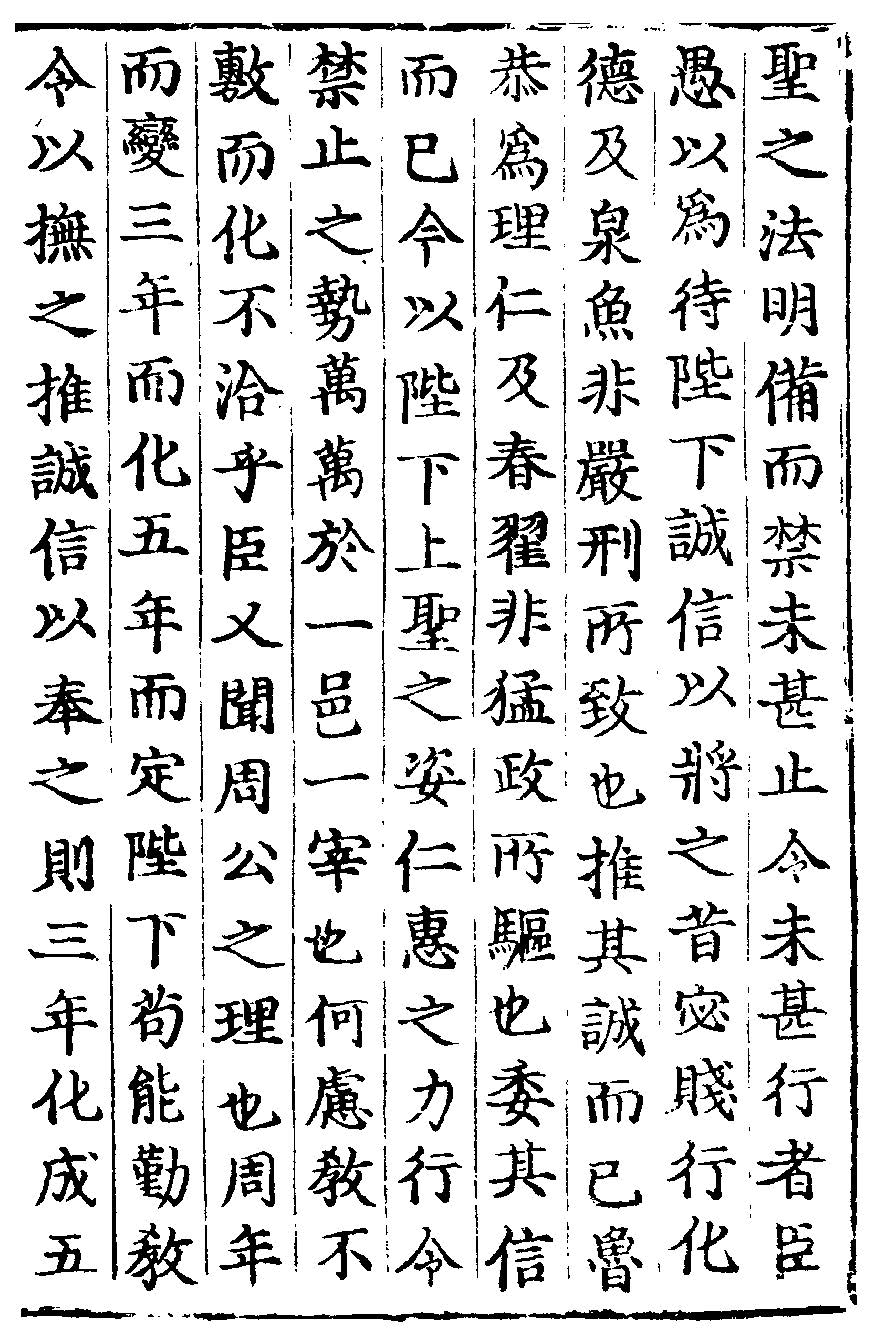 聖之法明備而禁未甚止令未甚行者臣
愚以為待陛下誠信以將之昔宓賤行化
德及泉魚非嚴刑所致也推其誠而已魯
恭為理仁及春翟非猛政所驅也委其信
而已今以陛下上聖之姿仁惠之力行令
禁止之勢萬萬於一邑一宰也何慮教不
敷而化不洽乎臣又聞周公之理也周年
而變三年而化五年而定陛下苟能勤教
令以撫之推誠信以奉之則三年化成五